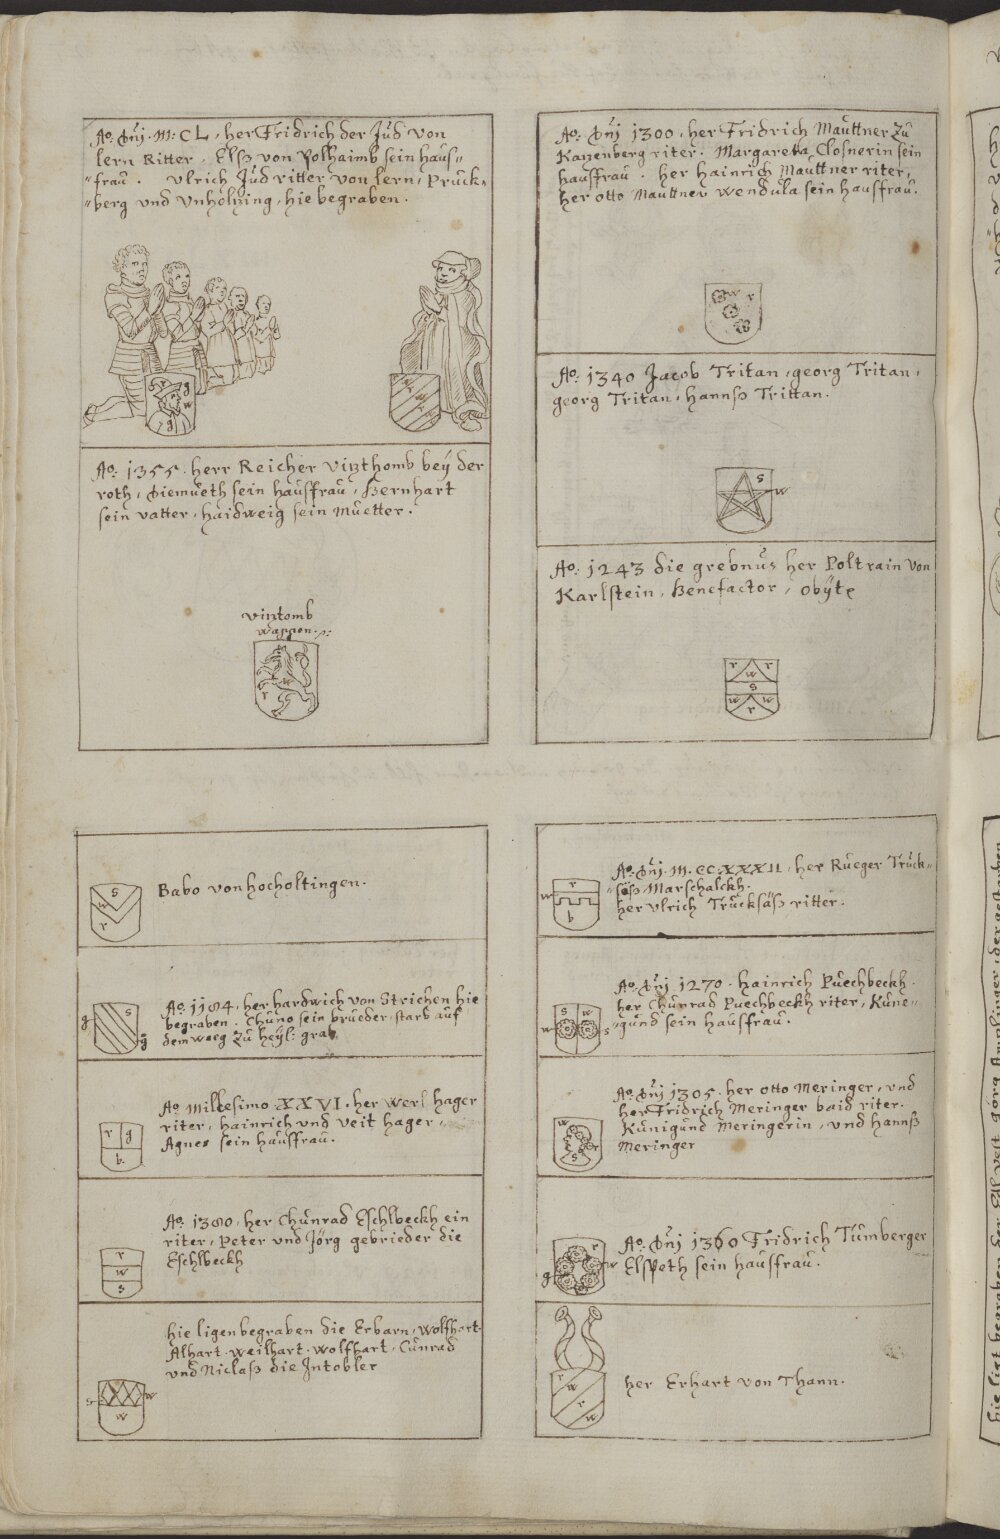 Ao: Dnj. M: CL, her Fridrich der Jud von
lern Ritter, Elß von Polhaimb sein haus„
„frau. Ulrich Jud ritter von lern, Pruck„
„berg und Unholzing, hie begraben.
Ao: 1355. herr Reicher Vitzthomb bey der
roth, Diemueth sein hausfrau, Bernhart
sein vatter, haidweig sein muetter.
vitztomb
wappen.
r
Ao: Dnj 1300, her Fridrich Mauttner zu
Kazenberg riter. Margareta Closnerin sein
hausfrau. her hainrich Mauttner riter,
her otto Mauttner Wendula sein hausfrau.
w r
Ao: 1340 Jacob Tritan, georg Tritan,
georg Tritan, hannß Trittan.
s
w
Ao: 1243 die grebnus her Poltrain von
Karlstein, Benefactor, obyt
r r
w
s
w w
r
s
w
r
Babo von hocholtingen.
Ao 1184, her hardwich von Strichen hie
begraben. Chuno sein brueder, starb auf
dem weeg zu heyl: grab
g s
g
Ao Millesimo XXVI. her Werl hager
riter, hainrich und Veit hager,
Agnes sein hausfrau.
r g
b.
Ao: 1380, her Chunrad Eschlbeckh ein
riter, Peter und Jörg gebrieder die
Eschlbeckh
r
w
s
hie ligen begraben die Erbarn, Wolfhart.
Alhart. Weilhart. Wolfhart, Cunrad
und Niclaß die Intobler
s w
w
Ao: Dnj. M. CC. XXXII, her Rueger Truck„
„säß Marschalckh.
her Ulrich Trucksäß ritter.
r
w
b
Ao: Dnj 1270. hainrich Puechbeckh.
her Chunrad Puechbeckh riter, Kune„
„gund sein hausfrau.
s w
w s
Ao: Dnj 1305. her otto Meringer, und
her Fridrich Meringer baid riter.
Kunigund Meringerin, und hannß
Meringer
w
r
s
Ao: Dnj 1360 Fridrich Tumberger
Elspeth sein hausfrau.
r
w
g
her Erhart von Thann.
r
w
r
w